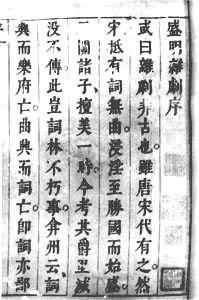 盛明雜劇序
或曰雜劇非古也雖唐宋代有之然
宋抵有詞無曲浸淫至勝國而始盛
關諸子擅美一時今考其爵里滅
没不傳此豈詞林不朽事弇州云詞
興而樂府亡曲興而詞亡即詞亦鄙